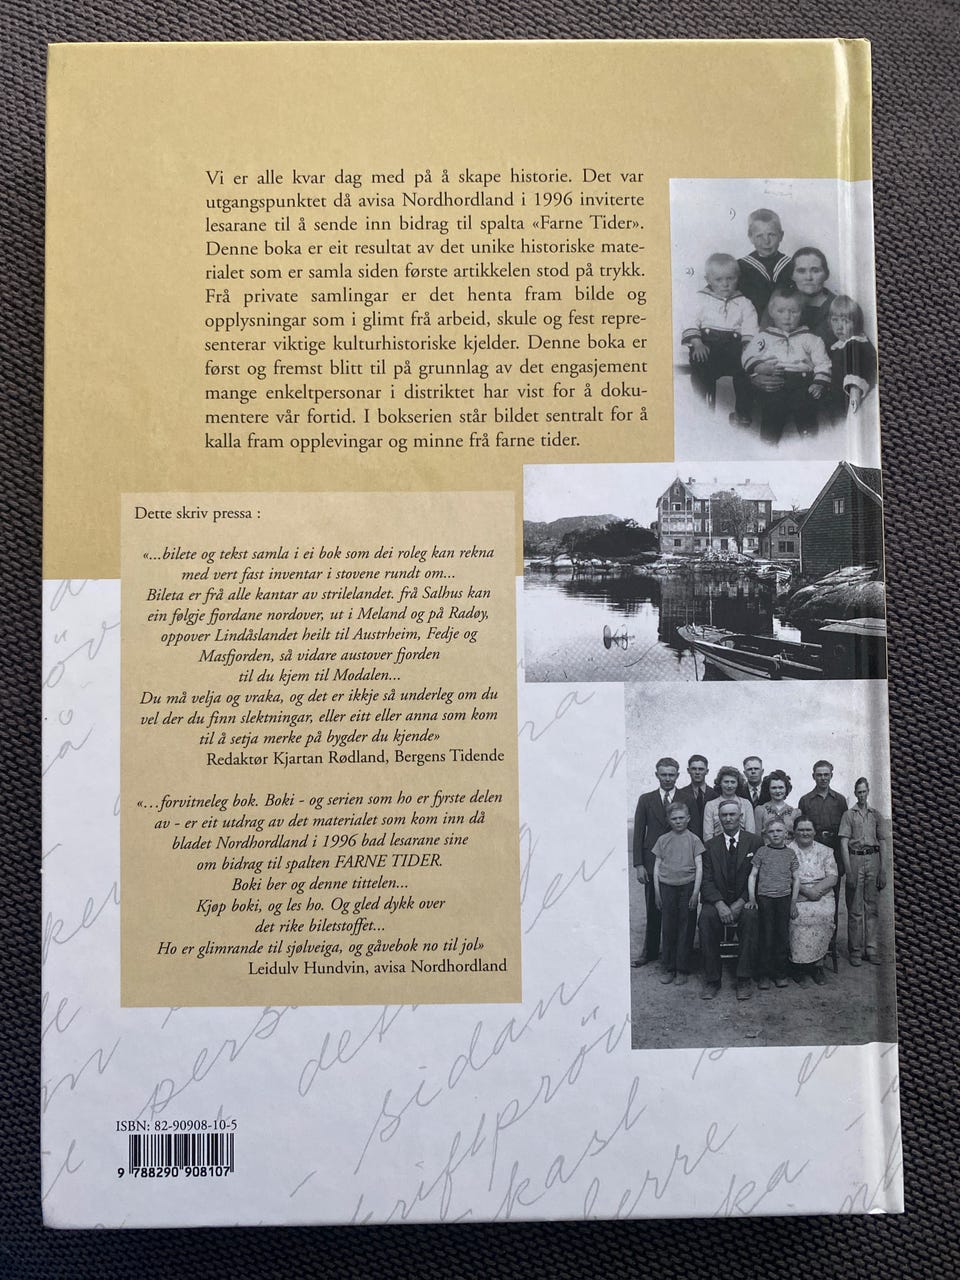 Vi er alle kvar dag med på å skape historie. Det var
utgangspunktet då avisa Nordhordland i 1996 inviterte
lesarane til å sende inn bidrag til spalta «Farne Tider».
Denne boka er eit resultat av det unike historiske mate-
rialet som er samla siden første artikkelen stod på trykk.
Frå private samlingar er det henta fram bilde og
opplysningar som i glimt frå arbeid, skule og fest repre-
senterar viktige kulturhistoriske kjelder. Denne boka er
først og fremst blitt til på grunnlag av det engasjement
mange enkeltpersonar i distriktet har vist for å doku-
mentere vår fortid. I bokserien står bildet sentralt for å
kalla fram opplevingar og minne frå farne tider.
1)
2)
3)
Dette skriv pressa :
«...bilete og tekst samla i ei bok som dei roleg kan rekna
med vert fast inventar i stovene rundt om...
Bileta er frå alle kantar av strilelandet. frå Salhus kan
ein følgje fjordane nordover, ut i Meland og på Radøy,
oppover Lindåslandet heilt til Austrheim, Fedje og
Masfjorden, så vidare austover fjorden
til du kjem til Modalen...
Du må velja og vraka, og det er ikkje så underleg om du
vel der du finn slektningar, eller eitt eller anna som kom
til å setja merke på bygder du kjende»
Redaktør Kjartan Rødland, Bergens Tidende
«...forvitneleg bok. Boki - og serien som ho er fyrste delen
av - er eit utdrag av det materialet som kom inn då
bladet Nordhordland i 1996 bad lesarane sine
om bidrag til spalten FARNE TIDER.
Boki ber og denne tittelen...
Kjøp boki, og les ho. Og gled dykk over
det rike biletstoffet...
Ho er glimrande til sjølveiga, og gåvebok no til jol»
Leidulv Hundvin, avisa Nordhordland
det
sidan
skriftprøv
kast
berre
ka
ISBN: 82-90908-10-5
9 788290 908107